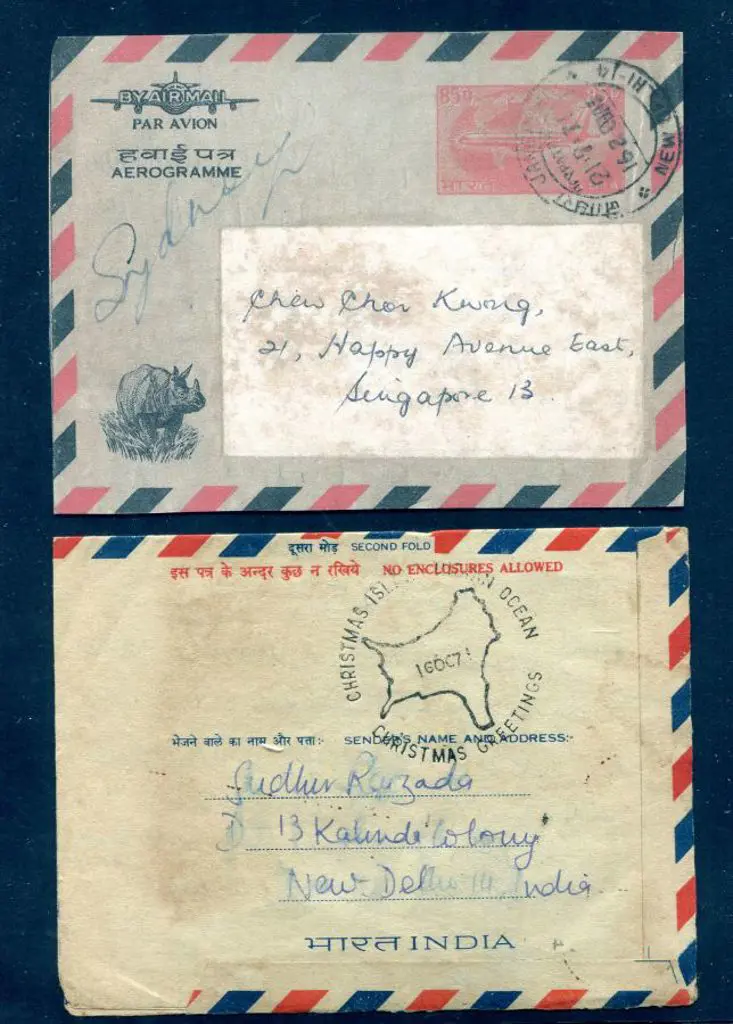 BY AIR MAIL
PAR AVION
हवाई पत्र
AEROGRAMME
Sydney
85
भारत
NEW
Chew Chor Kwong,
21, Happy Avenue East,
Singapore 13.
दूसरा मोड़ SECOND FOLD
इस पत्र के अन्दर कुछ न रखिये NO ENCLOSURES ALLOWED
CHRISTMAS OCEAN
16OC71
CHRISTMAS GREETINGS
भेजने वाले का नाम और पता:- SENDER'S NAME AND ADDRESS:-
Sudhir Raizada
D-13 Kalindi Colony
New Delhi 14 India
भारत INDIA